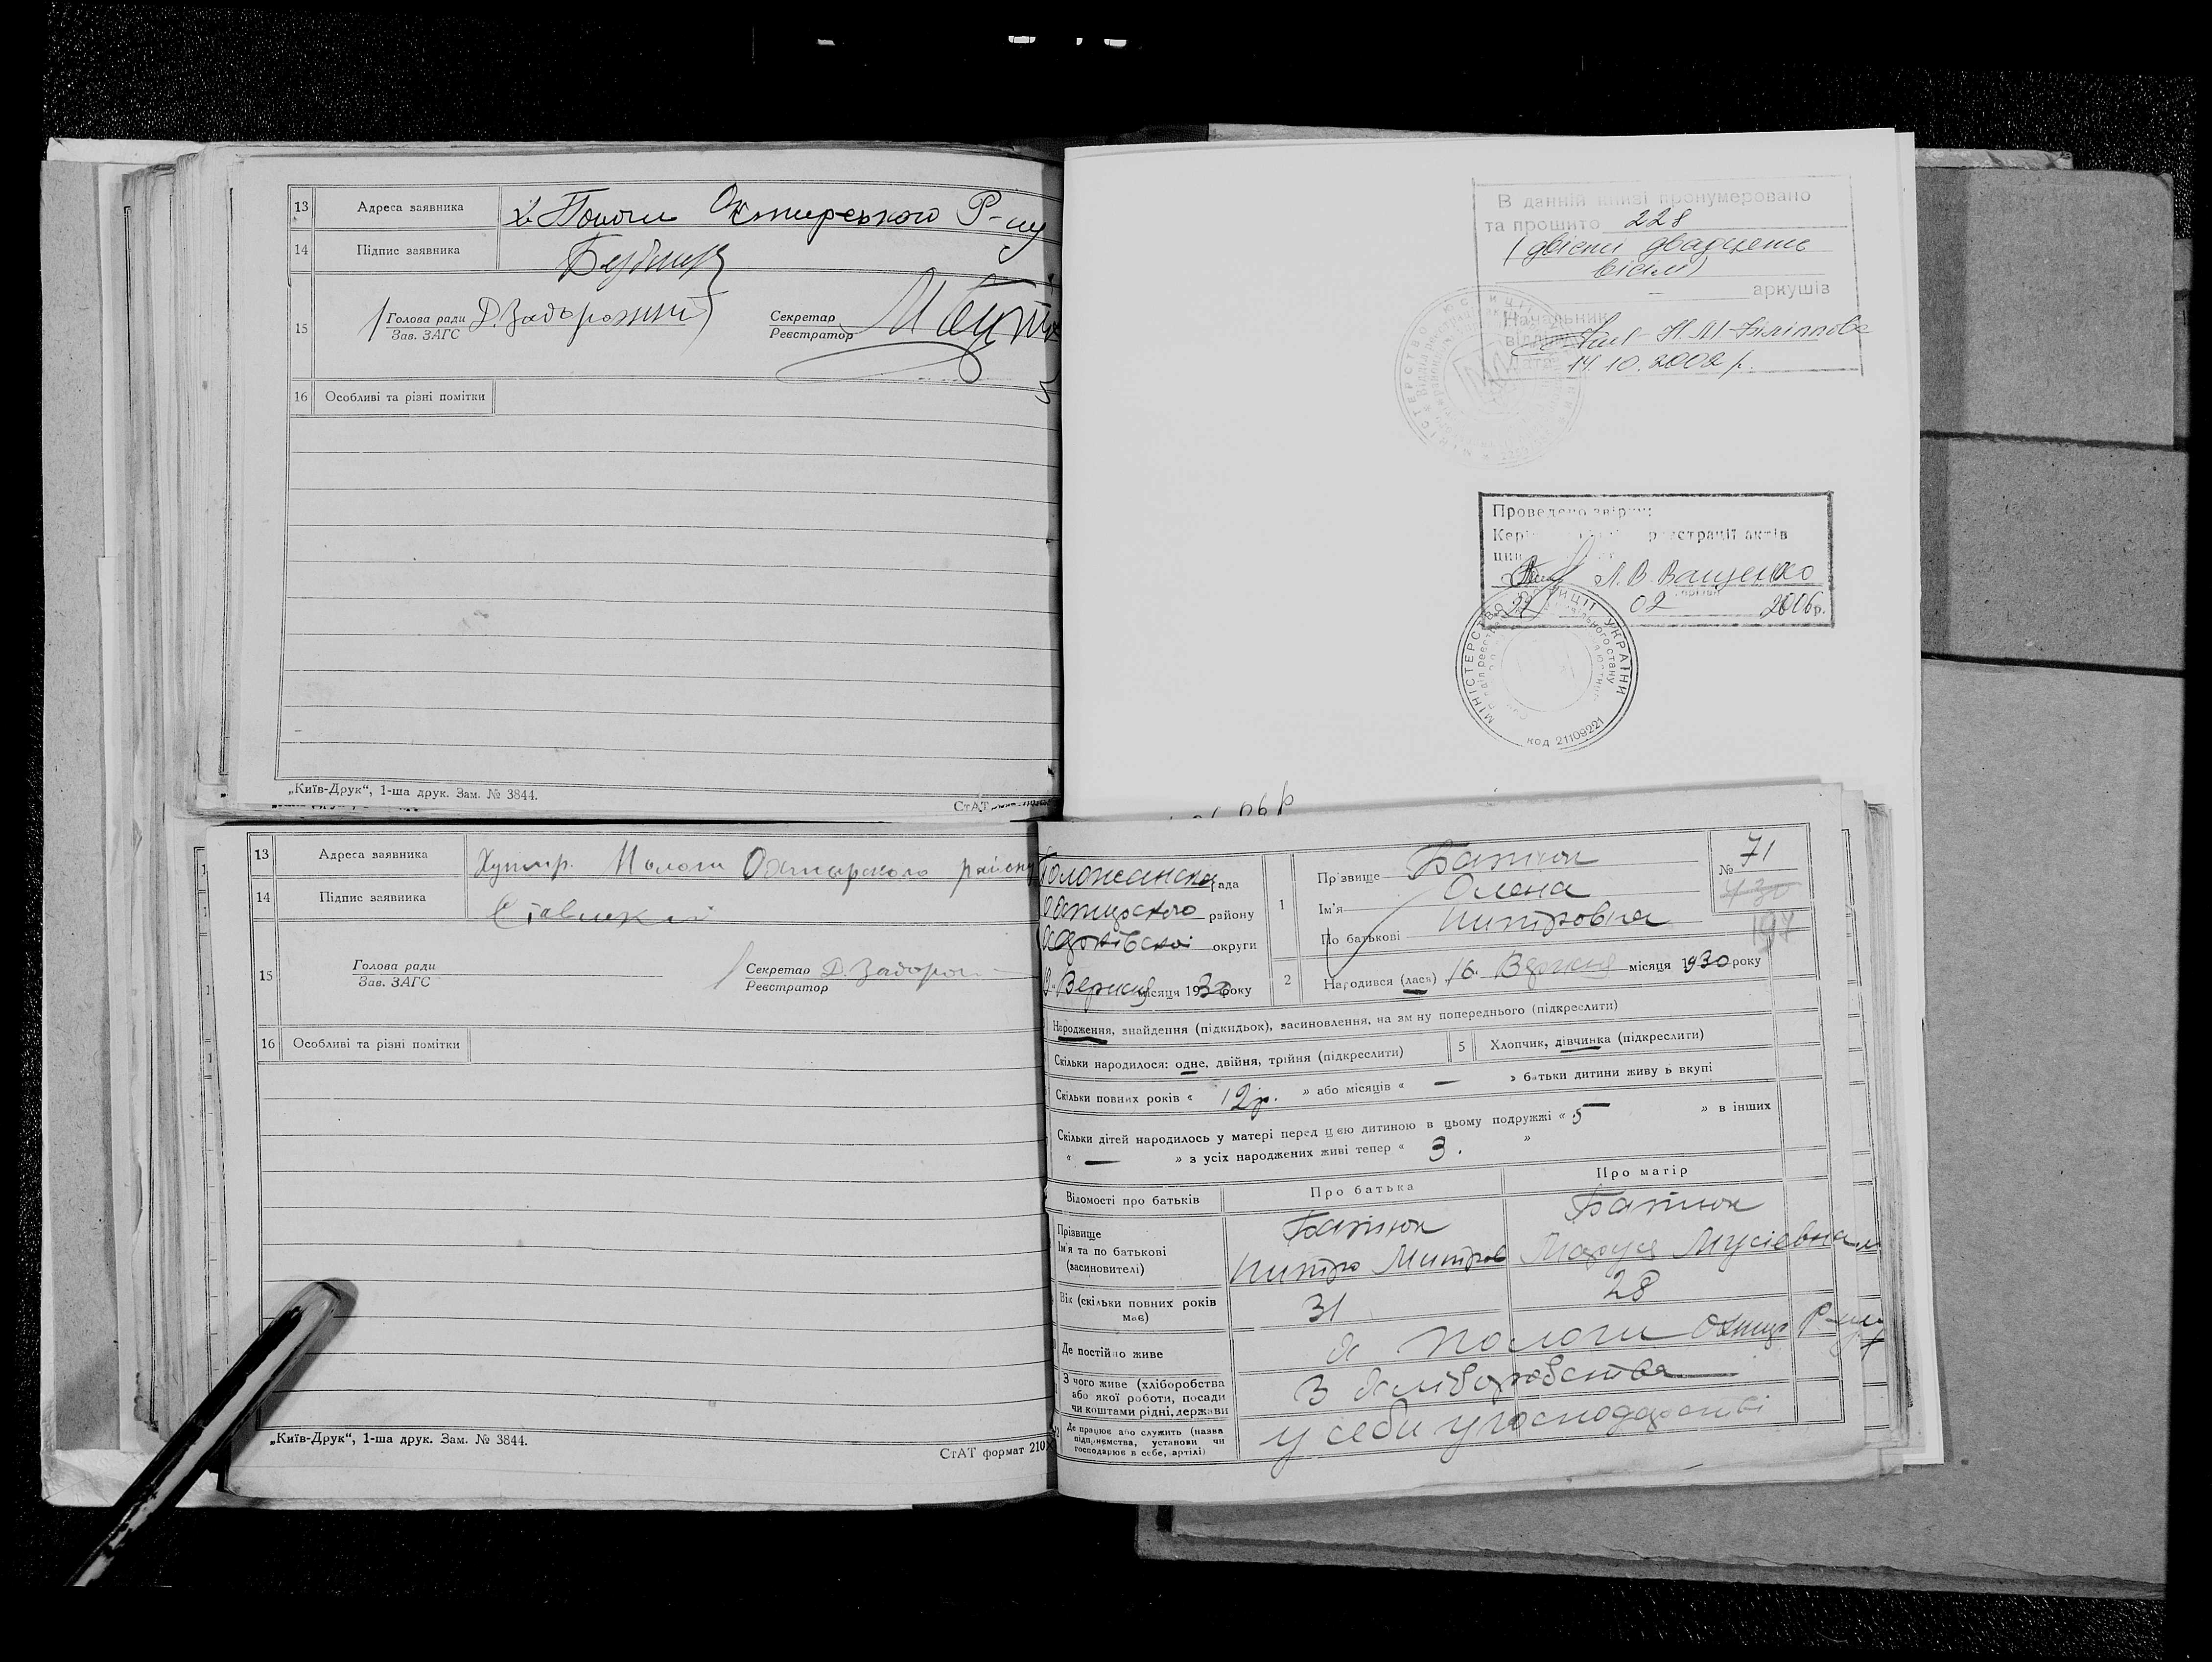 13 Адреса заявника х. Пологи Охтирського Р-ну
14 Підпис заявника
15 Голова ради Д. Задорожній Секретар
Зав. ЗАГС Реєстратор
16 Особливі та різні помітки
„Київ-Друк“, 1-ша друк. Зам. № 3844.
СтАТ
В данній книзі пронумеровано
та прошито 228
(двісті двадцять
вісім)
аркушів
Начальник
відділу
14.10.2002 р.
Проведено звірку:
реєстрації актів
Л.В. Ващенко
02 2006р.
МІНІСТЕРСТВО ЮСТИЦІЇ УКРАЇНИ
код 21109221
13 Адреса заявника Хутір. Пологи Охтирского району
14 Підпис заявника
15 Голова ради Секретар Д. Задорож
Зав. ЗАГС Реєстратор
16 Особливі та різні помітки
„Київ-Друк“, 1-ша друк. Зам. № 3844.
СтАТ формат 210
Положанська рада
району
округи
Вересня місяця 1930 року
1 Прізвище Батюк
Ім'я Олена
По батькові Митровна
№ 71
430
197
2 Народився (лась) 16 Вересня місяця 1930 року
Народження, знайдення (підкидьок), васиновлення, на зміну попереднього (підкреслити)
Скільки народилося: одне, двійня, трійня (підкреслити) 5 Хлопчик, дівчинка (підкреслити)
Скільки повних років « 12 р. » або місяців « — » батьки дитини живуть вкупі
Скільки дітей народилось у матері перед цією дитиною в цьому подружжі « 5 » в інших
« — » з усіх народжених живі тепер « 3. »
Відомості про батьків Про батька Про матір
Прізвище Батюк Батюк
Ім'я та по батькові Митро Митров Маруся Мусієвна
(васиновителі)
Вік (скільки повних років має) 31 28
Де постійно живе х Пологи Охтир Р-ну
З чого живе (хліборобства або якої роботи, посади чи коштами рідні, держави З хліборобства
Де працює або служить (назва підприємства, установи чи господарює в себе, артілі) у себи у господарстві